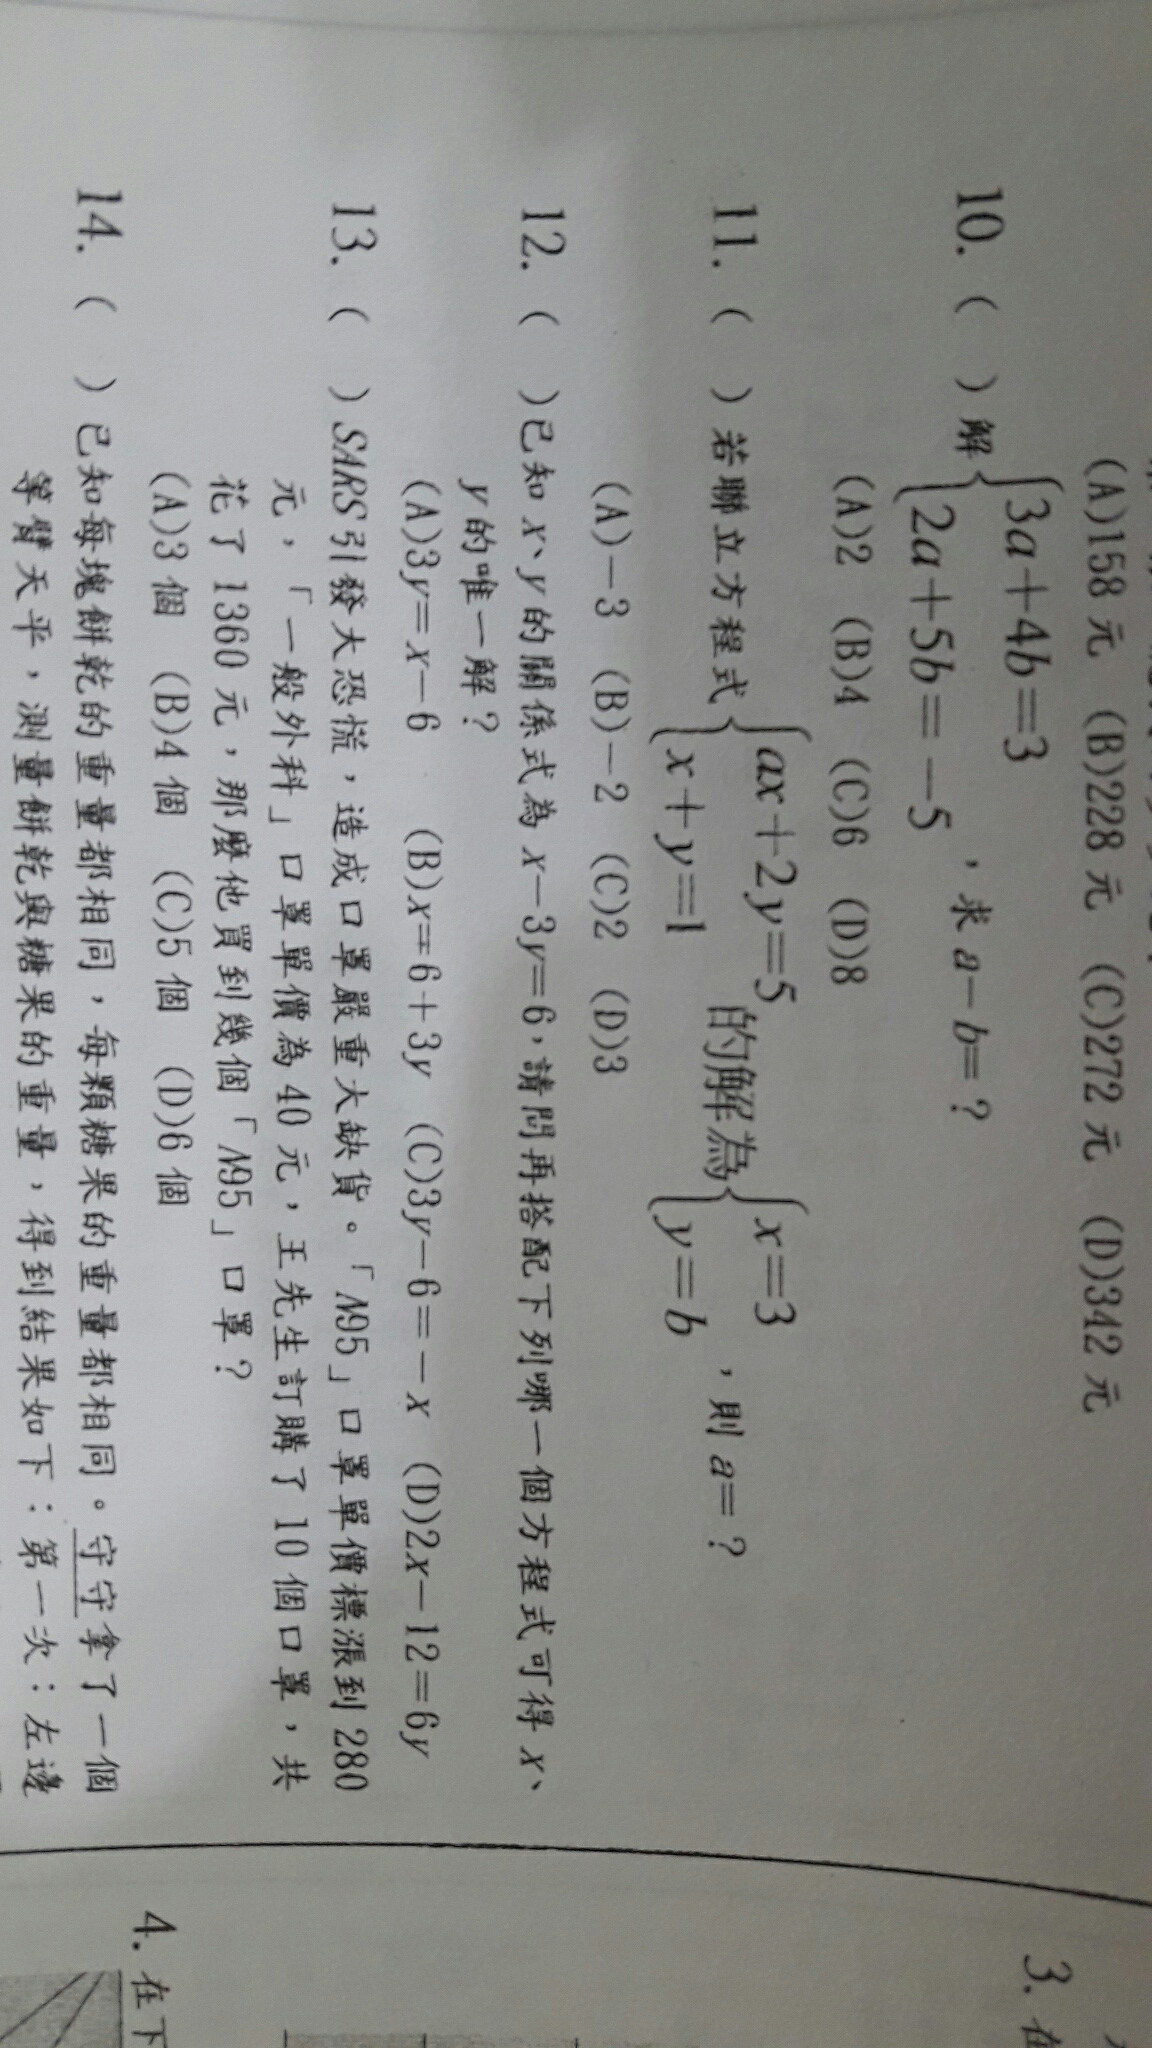 (A)158 元 (B)228 元 (C)272 元 (D)342 元
10. ( )解{3a+4b=3
2a+5b=-5 ,求 a-b=?
(A)2 (B)4 (C)6 (D)8
11. ( )若聯立方程式{ax+2y=5
x+y=1 的解為{x=3
y=b ,則 a=?
(A)-3 (B)-2 (C)2 (D)3
12. ( )已知 x、y 的關係式為 x-3y=6,請問再搭配下列哪一個方程式可得 x、
y 的唯一解?
(A)3y=x-6 (B)x=6+3y (C)3y-6=-x (D)2x-12=6y
13. ( )SARS引發大恐慌,造成口罩嚴重大缺貨。「N95」口罩單價標漲到 280
元,「一般外科」口罩單價為 40 元,王先生訂購了 10 個口罩,共
花了 1360 元,那麼他買到幾個「N95」口罩?
(A)3 個 (B)4 個 (C)5 個 (D)6 個
14. ( )已知每塊餅乾的重量都相同,每顆糖果的重量都相同。守守拿了一個
等臂天平,測量餅乾與糖果的重量,得到結果如下:第一次:左邊
3. 在
4. 在下